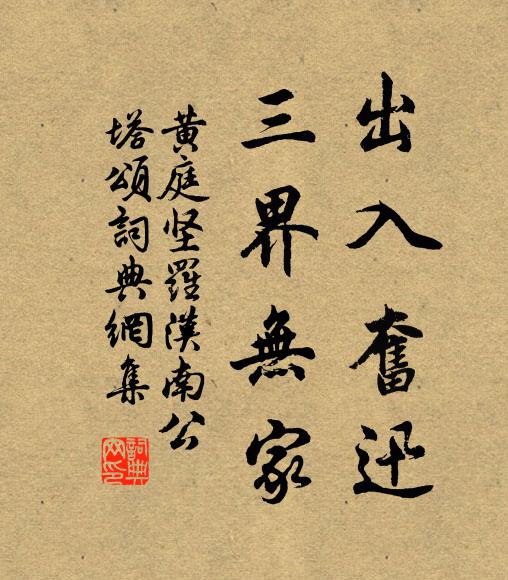 出入奮迅
三界無家
黄庭坚羅漢南公
塔頌詞典網集
詞典網印